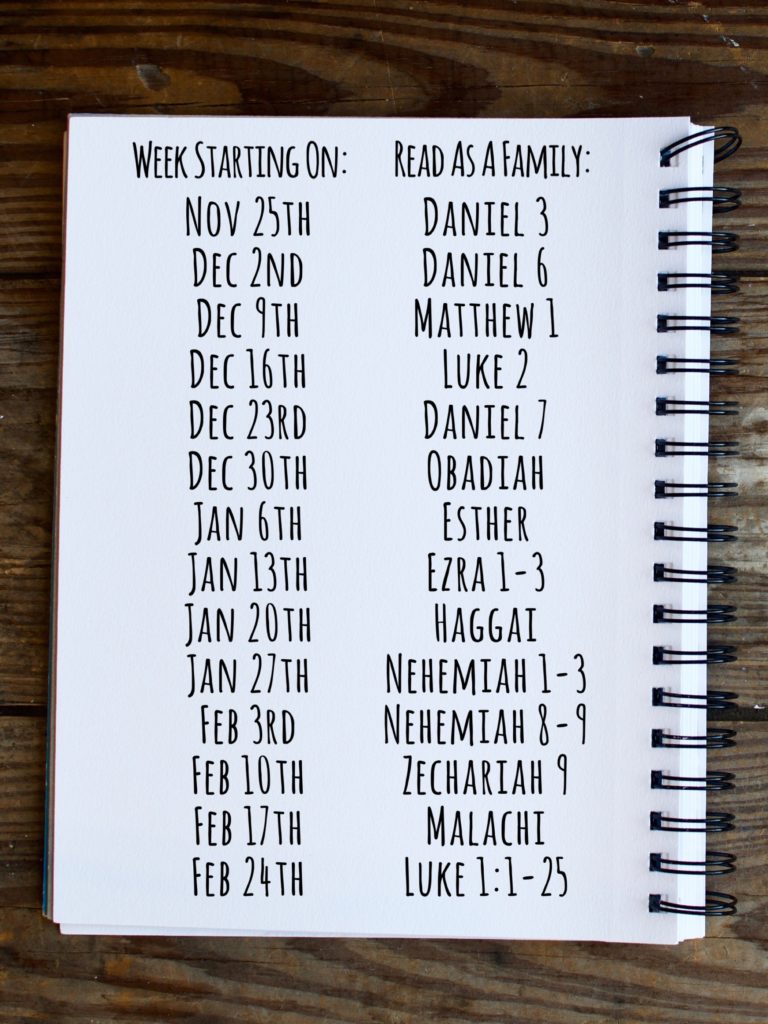 Week Starting On: Read As A Family:
Nov 25th Daniel 3
Dec 2nd Daniel 6
Dec 9th Matthew 1
Dec 16th Luke 2
Dec 23rd Daniel 7
Dec 30th Obadiah
Jan 6th Esther
Jan 13th Ezra 1-3
Jan 20th Haggai
Jan 27th Nehemiah 1-3
Feb 3rd Nehemiah 8-9
Feb 10th Zechariah 9
Feb 17th Malachi
Feb 24th Luke 1:1-25